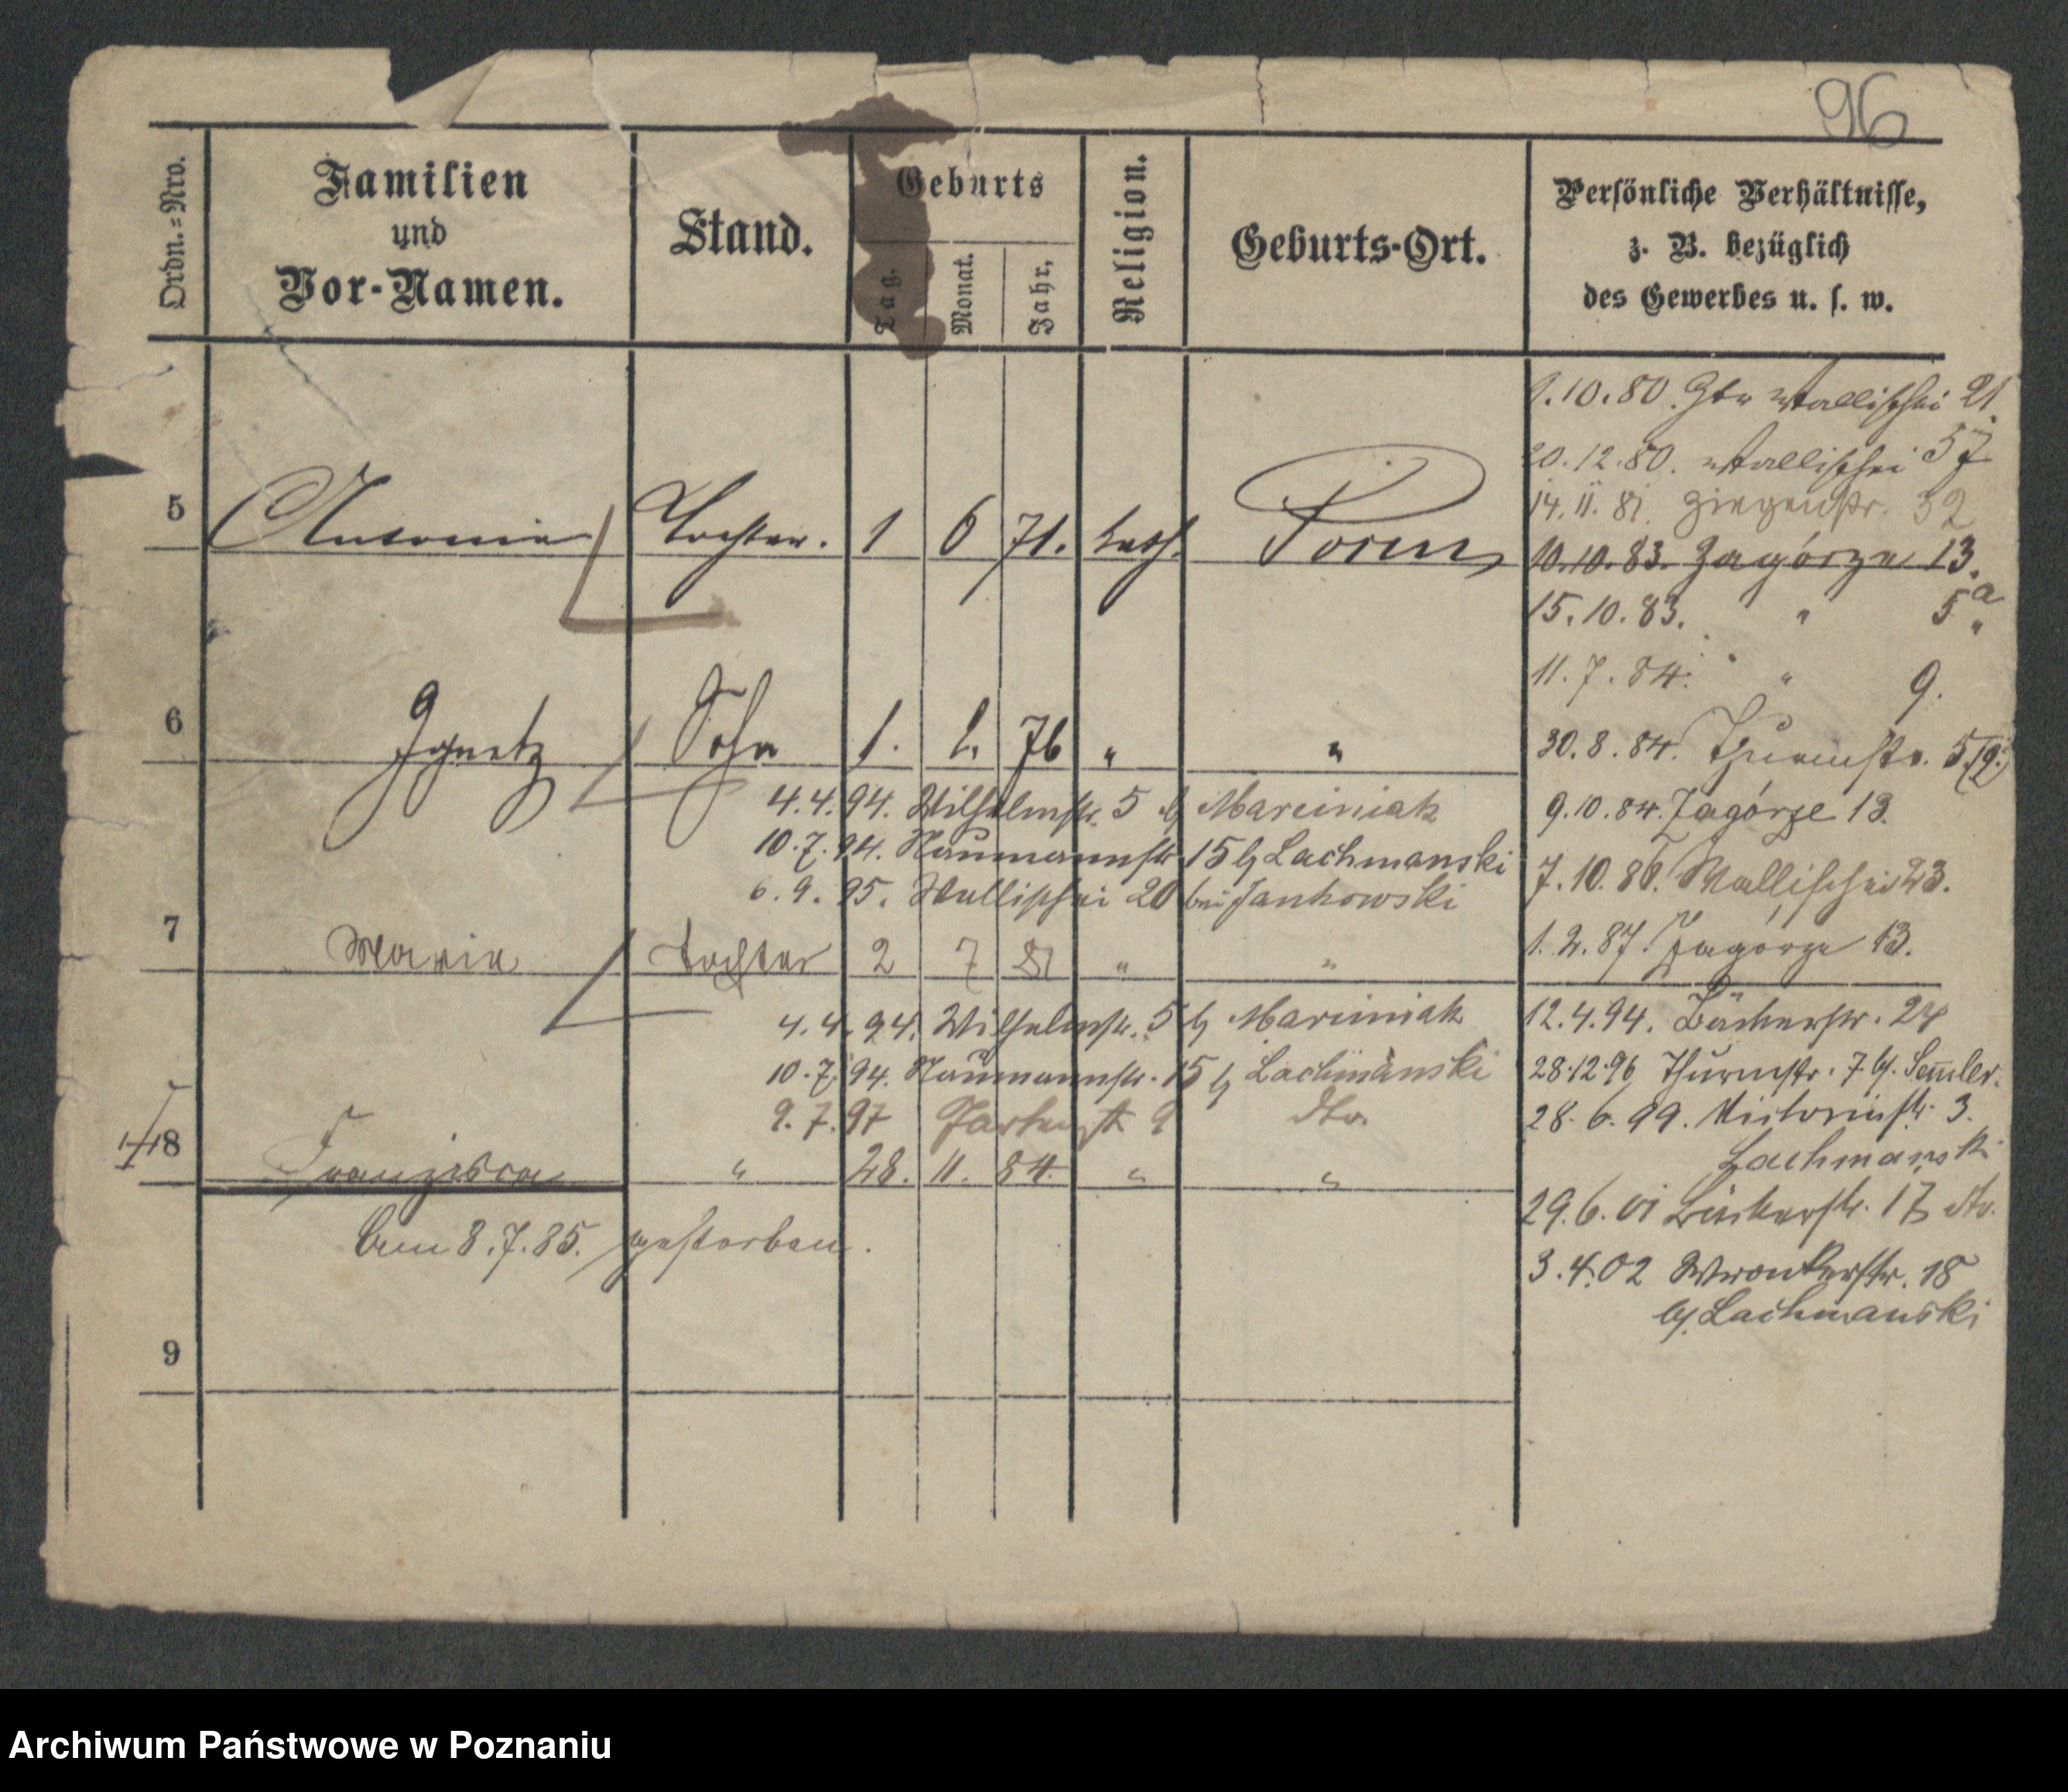 96
Ordn.=Nro.
Familien
und
Vor-Namen.
Stand.
Geburts
Tag.
Monat.
Jahr,
Religion.
Geburts-Ort.
Persönliche Verhältnisse,
z. B. bezüglich
des Gewerbes u. s. w.
1.10.80. Wallischei 21.
20.12.80. Wallischei 57
14.11.81. Ziegenstr. 32
5 Antonie Tochter. 1 6 71. kath. Posen
10.10.83. Zagórze 13.
15.10.83. " 5a
11.7.84. " 9.
6 Ignatz Sohn 1. 2. 76 " "
30.8.84. Thurmstr. 5
4.4.94. Wilhelmstr. 5 b/ Marciniak
9.10.84. Zagórze 13.
10.7.94. Naumannstr 15 b/ Lachmanski
7.10.86. Wallischei 23.
6.9.95. Wallischei 20 bei Jankowski
7 Marie Tochter 2 7 81 " "
1.2.87. Zagórze 13.
4.4.94. Wilhelmstr. 5 b/ Marciniak
12.4.94. Bäckerstr. 24
10.7.94. Naumannstr. 15 b/ Lachmanski
28.12.96 Thurmstr. 7 b/. Semler.
9.7.97 9 dto.
28.6.99. Victoriastr. 3.
Lachmanski
8 Franziska " 28. 11. 84. " "
29.6.01 Bäckerstr. 17 dto.
Am 8.7.85. gestorben.
3.4.02 Wronkerstr. 18
b/. Lachmanski
9
Archiwum Państwowe w Poznaniu